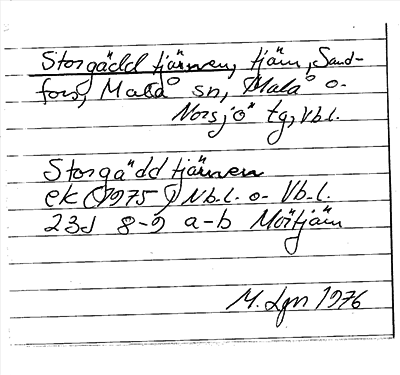 Storgäddtjärnen, tjärn, Sand-
fors, Malå sn, Malå o.
Norsjö tg, Vbl.
Storgäddtjärnen
ek (1975) Nb.l. o. Vb.l.
23J 8-9 a-b Mörtjärn
M. Lgn 1976